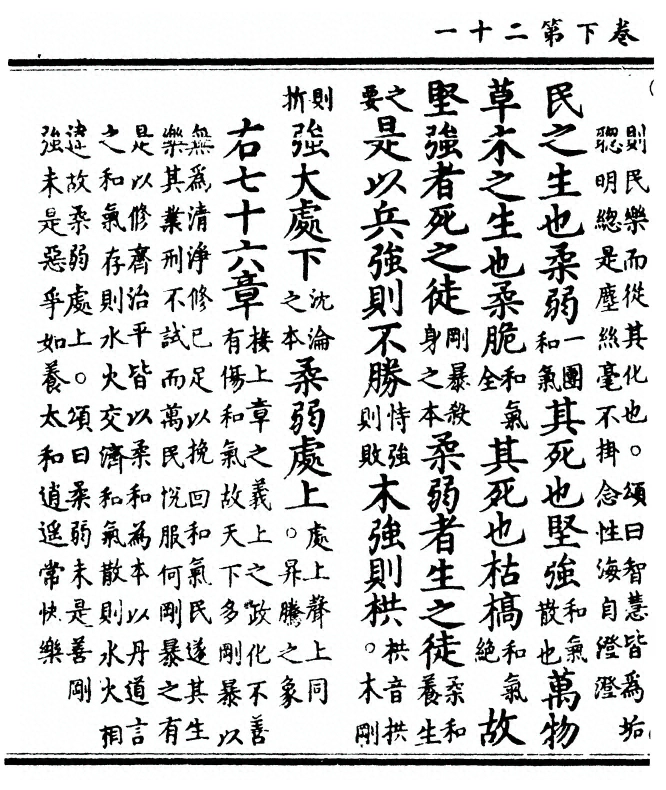 卷下第二十一
則民樂而從其化也。頌曰智慧皆為垢
聰明總是塵絲毫不掛念性海自澄澄
民之生也柔弱一團和氣其死也堅強和氣散也萬物
草木之生也柔脆和氣全其死也枯槁和氣絕故
堅強者死之徒剛暴殺身之本柔弱者生之徒柔和養生
之要是以兵強則不勝恃強則敗木強則栱。栱音拱木剛
則折強大處下沈淪之本柔弱處上。處上聲上同昇騰之象
右七十六章接上章之義上之政化不善有傷和氣故天下多剛暴以
無為清淨修己足以挽回和氣民遂其生
樂其業刑不試而萬民悅服何剛暴之有
是以修齊治平皆以柔和為本以丹道言
之和氣存則水火交濟和氣散則水火相
違故柔弱處上。頌曰柔弱未是善剛
強未是惡乎如養太和逍遙常快樂